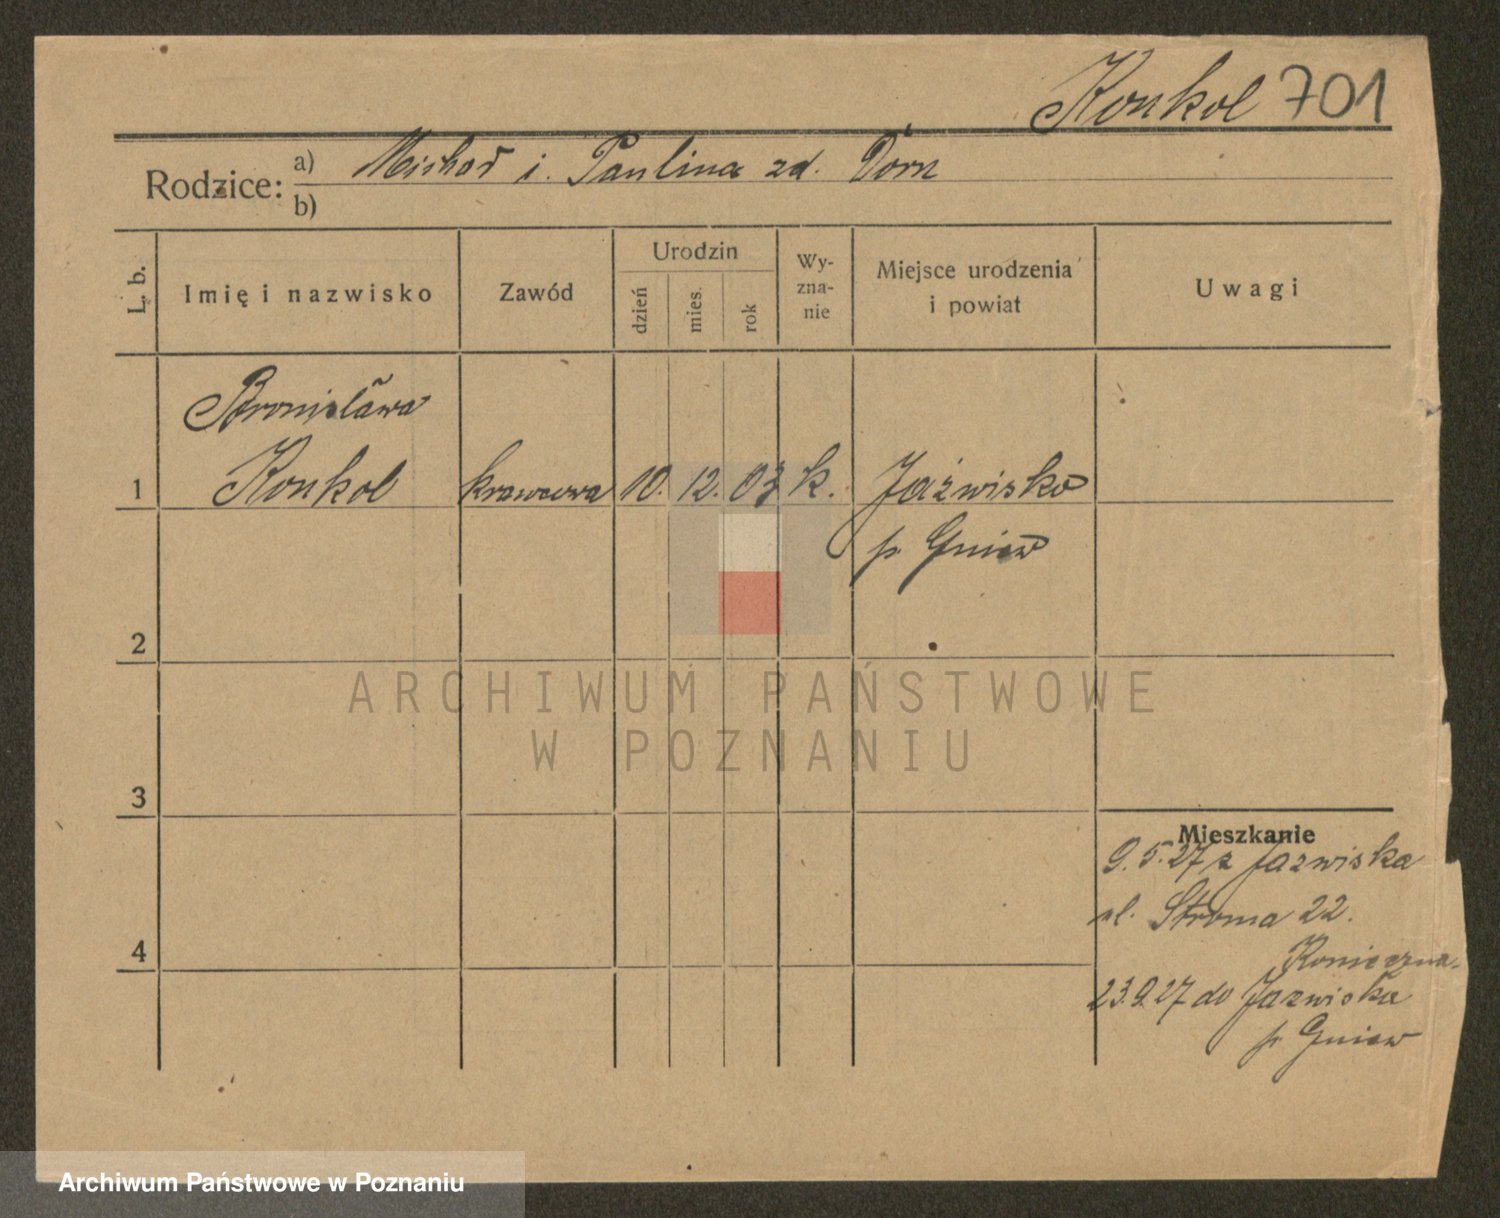 Konkol 701
Rodzice: a) Michał i. Paulina zd. Dorn
b)
L. b. Imię i nazwisko Zawód Urodzin dzień mies. rok Wy-zna-nie Miejsce urodzenia i powiat Uwagi
Bronisława
1 Konkol krawcowa 10. 12. 03 k. Jaźwisko
p Gniew
2
ARCHIWUM PAŃSTWOWE
W POZNANIU
3
Mieszkanie
9.5.27 z Jazwiska
ul. Stroma 22.
Konieczna.
4
23.9.27 do Jazwiska
p Gniew
Archiwum Państwowe w Poznaniu